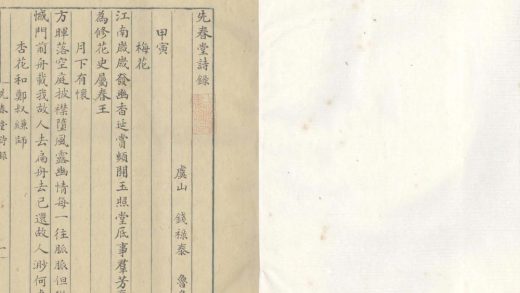 先春堂詩錄
虞山 錢祿泰 魯
甲寅
梅花
江南嵗嵗發幽香延賞頻開玉照堂底事羣芳
為修花史屬春王
月下有懷
方暉落空庭披襟墮風露幽情每一往脈脈但
門前舟載我故人去扁舟去已還故人渺何
杏花和鄭叔師
先春堂詩錄 一